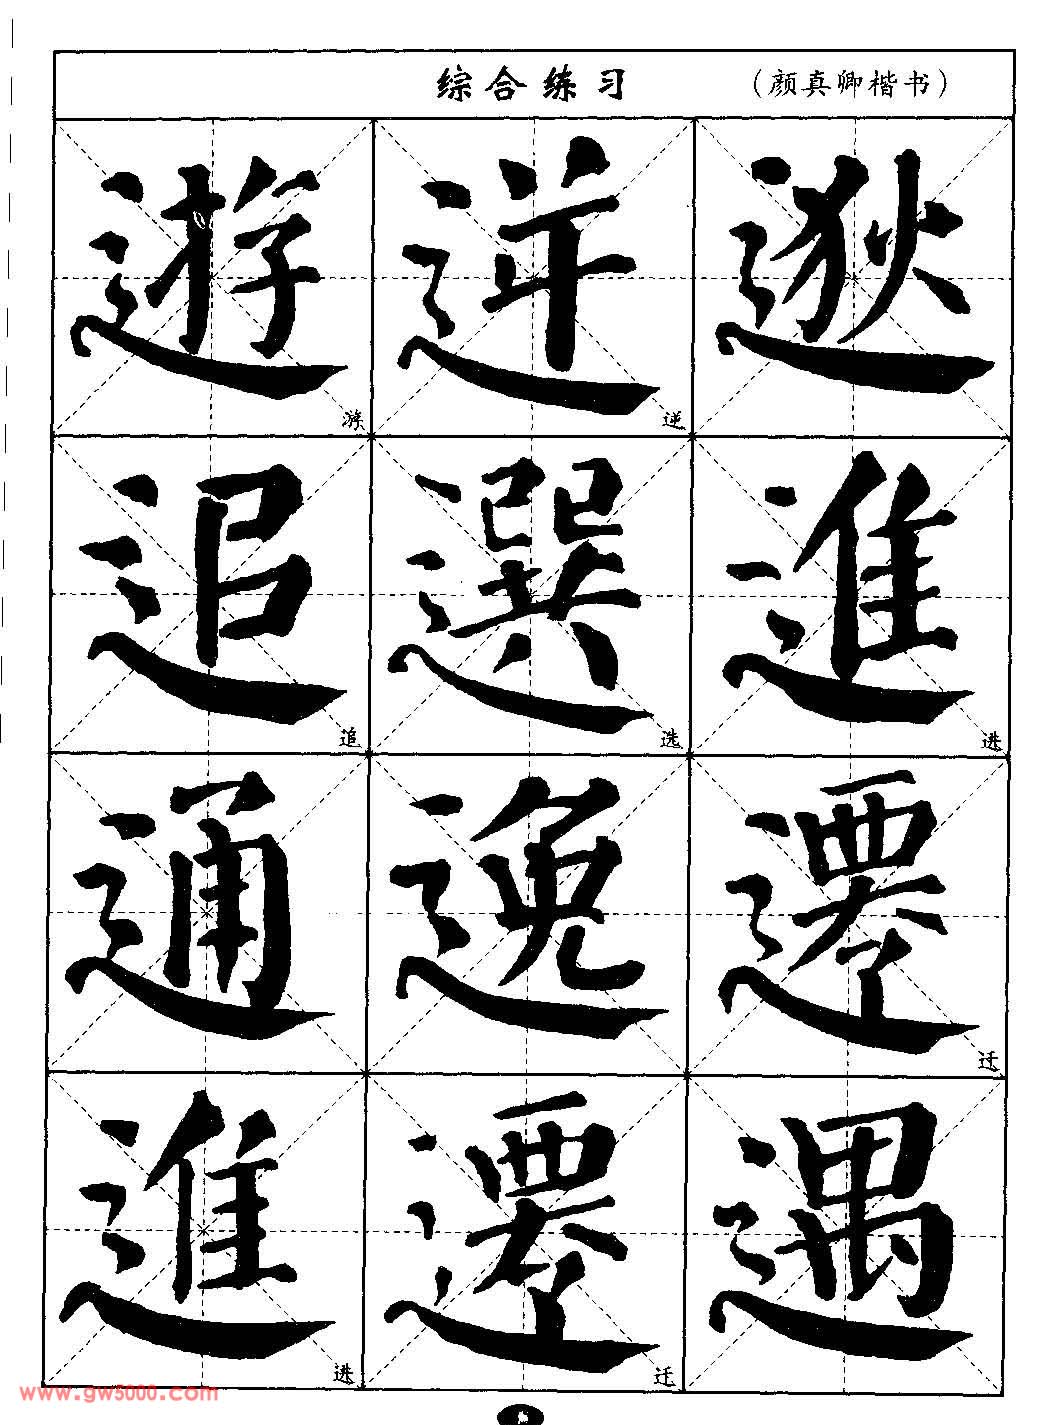 综合练习 （颜真卿楷书）
遊 逆 逖
游 逆
追 選 進
追 选 进
通 逸 遷
迁
進 遷 遇
进 迁
www.gw5000.com